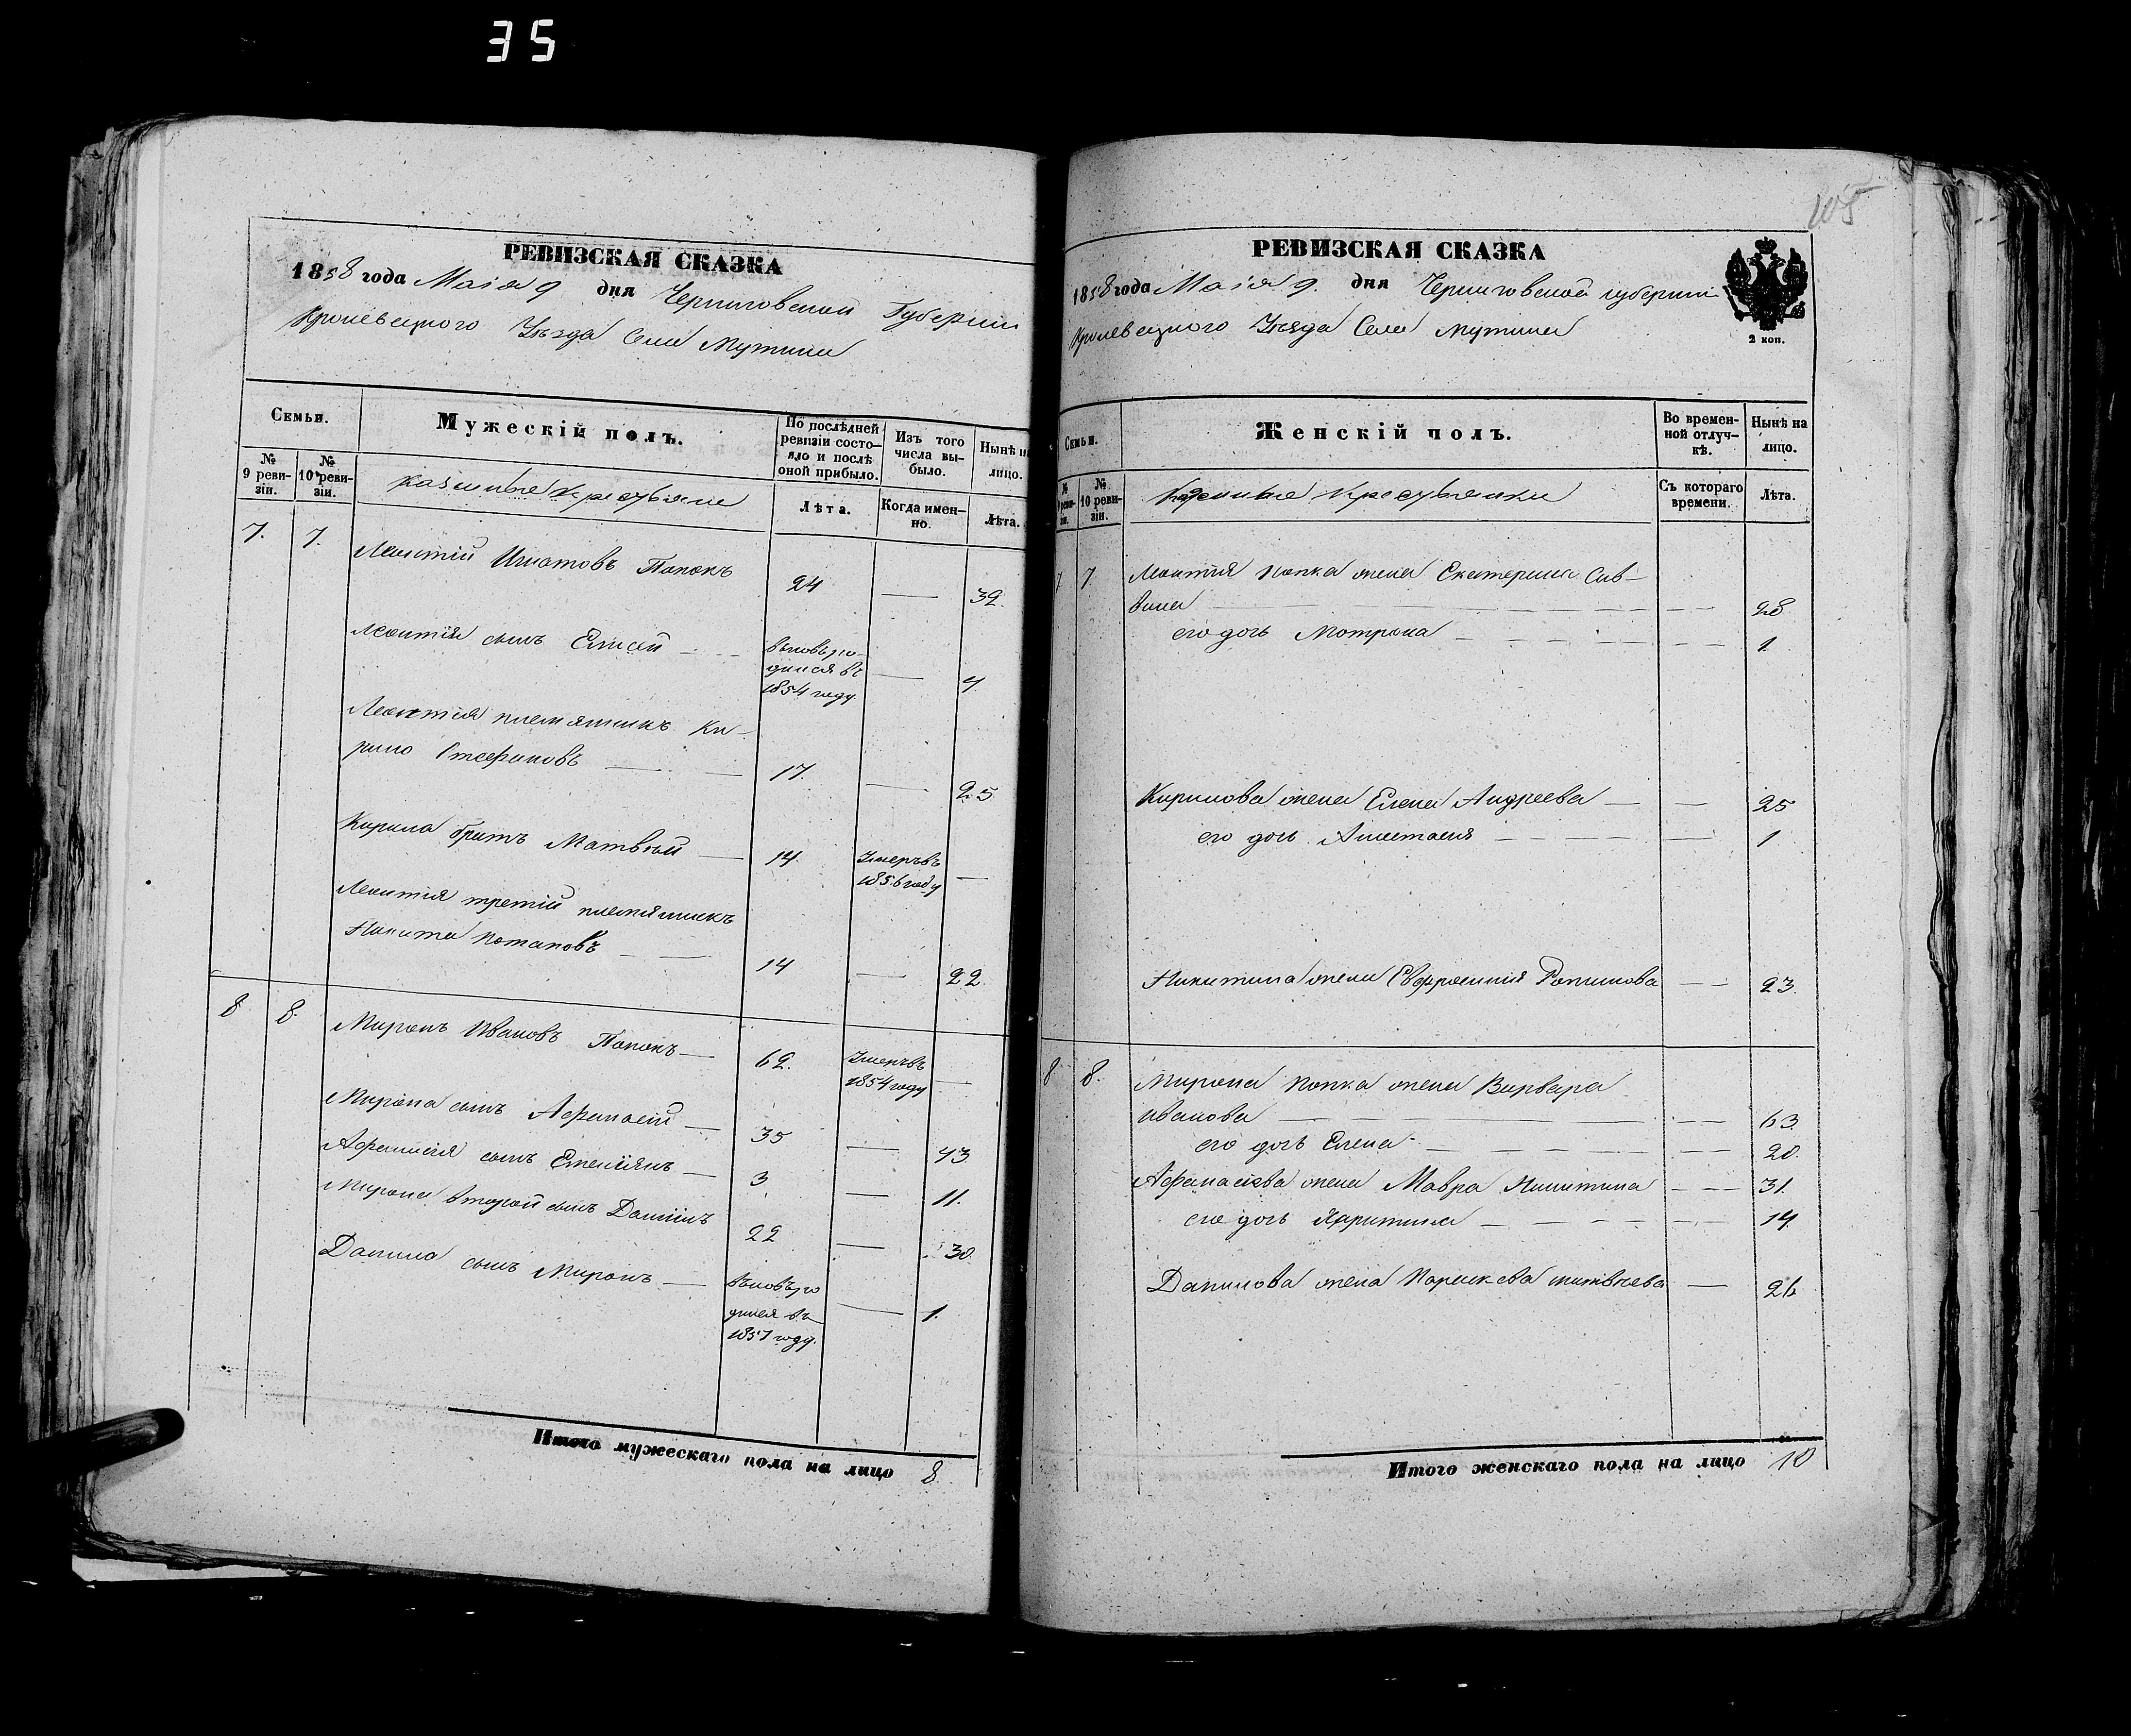 35
РЕВИЗСКАЯ СКАЗКА
1858 года Маія 9 дня Черниговской Губерніи
Кролевецкого Уѣзда Села Мутина
Семьи.
Мужескій полъ.
По послѣдней ревизіи состо-
яло и послѣ
оной прибыло.
Изъ того
числа вы-
было.
Нынѣ на
лицо.
№
9 реви-
зіи.
№
10 реви-
зіи.
Казенные Крестьяне
Лѣта.
Когда имен-
но.
Лѣта.
7. 7. Леонтій Игнатовъ Попокъ 24 — 32.
Леонтія сынъ Елисей — вновь ро-
дился въ
1854 году. — 4
Леонтія племянникъ Ки-
рило Стефановъ — 17. — 25
Кирила братъ Матвѣй — 14. Умеръ въ
1856 году —
Леонтія третій племянникъ
Никита Потаповъ — 14 — 22.
8 8. Миронъ Ивановъ Попокъ — 62. Умеръ въ
1854 году —
Мирона сынъ Афанасій — 35 — 43
Афанасія сынъ Емельянъ — 3 — 11.
Мирона второй сынъ Даніилъ 22 — 30.
Данила сынъ Миронъ — вновь ро
дился въ
1857 году. — 1.
Итого мужескаго пола на лицо 8
105
РЕВИЗСКАЯ СКАЗКА
1858 года Маія 9. дня Черниговской губерніи
Кролевецкого Уѣзда Села Мутина
2 коп.
Семьи.
Женскій полъ.
Во времен-
ной отлуч-
кѣ.
Нынѣ на
лицо.
№
9 реви-
зіи.
№
10 реви-
зіи.
Казенные Крестьянки
Съ котораго
времени.
Лѣта.
7 7. Леонтія Попка жена Екатерина Сав-
вина — — 28
его дочь Мотрона — — 1.
Кирилова жена Елена Андреева — — 25
его дочь Анастасія — — 1
Никитина жена Евфросинія — 23.
8 8. Мирона Попка жена Варвара
Иванова — — 63
его дочь Елена — — 20.
Афанасіева жена Мавра Никитина — 31.
его дочь Харитина — — 14.
Данилова жена Параскева Матвѣева — 26
Итого женскаго пола на лицо 10